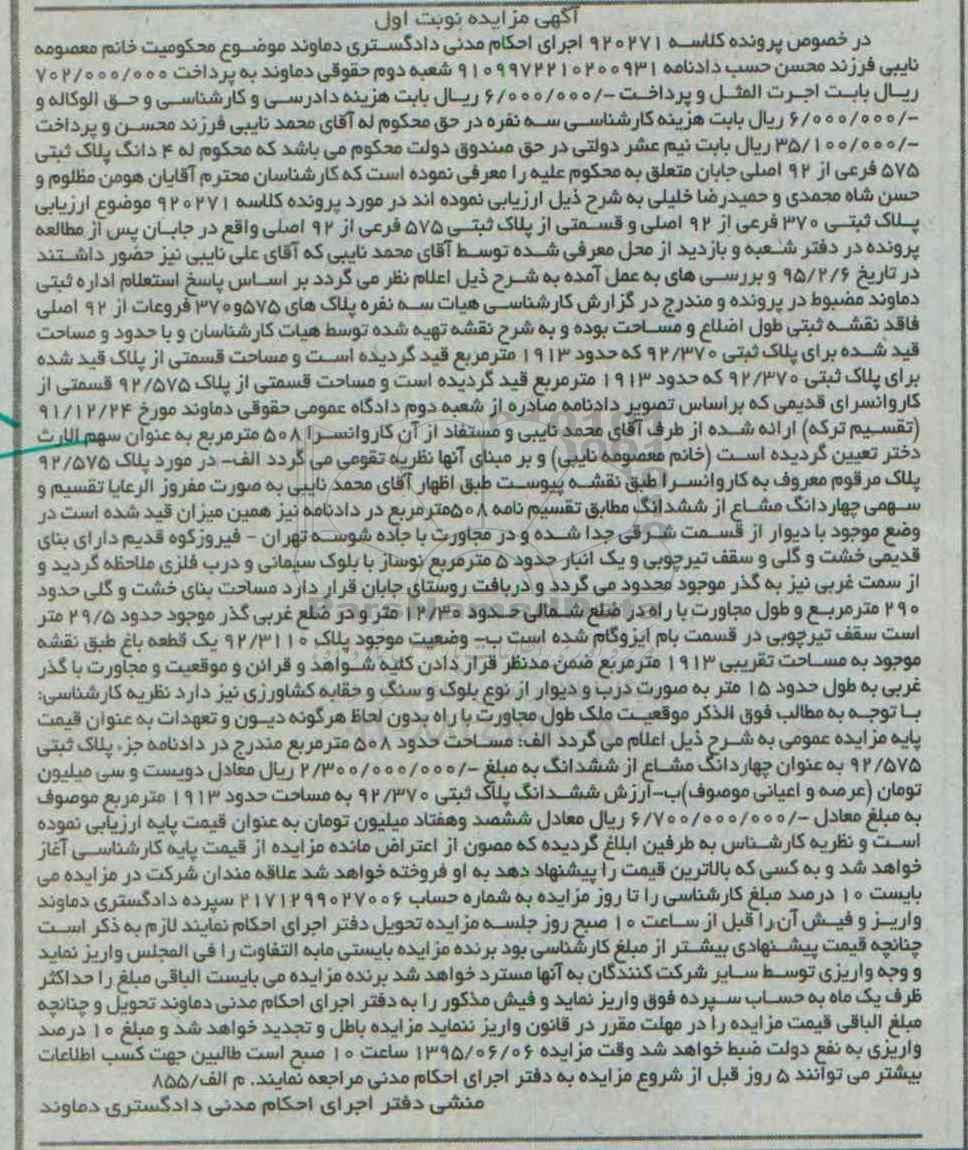 آگهی مزایده نوبت اول
در خصوص پرونده کلاسه ۹۲۰۲۷۱ اجرای احکام مدنی دادگستری دماوند موضوع محکومیت خانم معصومه
نایبی فرزند محسن حسب دادنامه ۹۱۰۹۹۷۲۲۱۰۲۰۰۹۳۱ شعبه دوم حقوقی دماوند به پرداخت ۷۰۲/۰۰۰/۰۰۰
ریال بابت اجرت المثل و پرداخت -/۶/۰۰۰/۰۰۰ ریال بابت هزینه دادرسی و کارشناسی و حق الوکاله و
-/۶/۰۰۰/۰۰۰ ریال بابت هزینه کارشناسی سه نفره در حق محکوم له آقای محمد نایبی فرزند محسن و پرداخت
-/۳۵/۱۰۰/۰۰۰ ریال بابت نیم عشر دولتی در حق صندوق دولت محکوم می باشد که محکوم له ۴ دانگ پلاک ثبتی
۵۷۵ فرعی از ۹۲ اصلی جابان متعلق به محکوم علیه را معرفی نموده است که کارشناسان محترم آقایان هومن مظلوم و
حسن شاه محمدی و حمیدرضا خلیلی به شرح ذیل ارزیابی نموده اند در مورد پرونده کلاسه ۹۲۰۲۷۱ موضوع ارزیابی
پلاک ثبتی ۳۷۰ فرعی از ۹۲ اصلی و قسمتی از پلاک ثبتی ۵۷۵ فرعی از ۹۲ اصلی واقع در جابان پس از مطالعه
پرونده در دفتر شعبه و بازدید از محل معرفی شده توسط آقای محمد نایبی که آقای علی نایبی نیز حضور داشتند
در تاریخ ۹۵/۲/۶ و بررسی های به عمل آمده به شرح ذیل اعلام نظر می گردد بر اساس پاسخ استعلام اداره ثبتی
دماوند مضبوط در پرونده و مندرج در گزارش کارشناسی هیات سه نفره پلاک های ۵۷۵و۳۷۰ فروعات از ۹۲ اصلی
فاقد نقشه ثبتی طول اضلاع و مساحت بوده و به شرح نقشه تهیه شده توسط هیات کارشناسان و با حدود و مساحت
قید شده برای پلاک ثبتی ۹۲/۳۷۰ که حدود ۱۹۱۳ مترمربع قید گردیده است و مساحت قسمتی از پلاک قید شده
برای پلاک ثبتی ۹۲/۳۷۰ که حدود ۱۹۱۳ مترمربع قید گردیده است و مساحت قسمتی از پلاک ۹۲/۵۷۵ قسمتی از
کاروانسرای قدیمی که براساس تصویر دادنامه صادره از شعبه دوم دادگاه عمومی حقوقی دماوند مورخ ۹۱/۱۲/۲۴
(تقسیم ترکه) ارائه شده از طرف آقای محمد نایبی و مستفاد از آن کاروانسرا ۵۰۸ مترمربع به عنوان سهم الارث
دختر تعیین گردیده است (خانم معصومه نایبی) و بر مبنای آنها نظریه تقومی می گردد الف- در مورد پلاک ۹۲/۵۷۵
پلاک مرقوم معروف به کاروانسرا طبق نقشه پیوست طبق اظهار آقای محمد نایبی به صورت مفروز الرعایا تقسیم و
سهمی چهاردانگ مشاع از ششدانگ مطابق تقسیم نامه ۵۰۸مترمربع در دادنامه نیز همین میزان قید شده است در
وضع موجود با دیوار از قسمت شرقی جدا شده و در مجاورت با جاده شوسه تهران - فیروزکوه قدیم دارای بنای
قدیمی خشت و گلی و سقف تیرچوبی و یک انبار حدود ۵ مترمربع نوساز با بلوک سیمانی و درب فلزی ملاحظه گردید و
از سمت غربی نیز به گذر موجود محدود می گردد و دربافت روستای جابان قرار دارد مساحت بنای خشت و گلی حدود
۲۹۰ مترمربع و طول مجاورت با راه در ضلع شمالی حدود ۱۲/۳۰ متر و در ضلع غربی گذر موجود حدود ۲۹/۵ متر
است سقف تیرچوبی در قسمت بام ایزوگام شده است ب- وضعیت موجود پلاک ۹۲/۳۱۱۰ یک قطعه باغ طبق نقشه
موجود به مساحت تقریبی ۱۹۱۳ مترمربع ضمن مدنظر قرار دادن کلیه شواهد و قرائن و موقعیت و مجاورت با گذر
غربی به طول حدود ۱۵ متر به صورت درب و دیوار از نوع بلوک و سنگ و حقابه کشاورزی نیز دارد نظریه کارشناسی:
با توجه به مطالب فوق الذکر موقعیت ملک طول مجاورت با راه بدون لحاظ هرگونه دیون و تعهدات به عنوان قیمت
پایه مزایده عمومی به شرح ذیل اعلام می گردد الف: مساحت حدود ۵۰۸ مترمربع مندرج در دادنامه جزء پلاک ثبتی
۹۲/۵۷۵ به عنوان چهاردانگ مشاع از ششدانگ به مبلغ -/۲/۳۰۰/۰۰۰/۰۰۰ ریال معادل دویست و سی میلیون
تومان (عرصه و اعیانی موصوف)ب-ارزش ششدانگ پلاک ثبتی ۹۲/۳۷۰ به مساحت حدود ۱۹۱۳ مترمربع موصوف
به مبلغ معادل -/۶/۷۰۰/۰۰۰/۰۰۰ ریال معادل ششصد وهفتاد میلیون تومان به عنوان قیمت پایه ارزیابی نموده
است و نظریه کارشناس به طرفین ابلاغ گردیده که مصون از اعتراض مانده مزایده از قیمت پایه کارشناسی آغاز
خواهد شد و به کسی که بالاترین قیمت را پیشنهاد دهد به او فروخته خواهد شد علاقه مندان شرکت در مزایده می
بایست ۱۰ درصد مبلغ کارشناسی را تا روز مزایده به شماره حساب ۲۱۷۱۲۹۹۰۲۷۰۰۶ سپرده دادگستری دماوند
واریز و فیش آن را قبل از ساعت ۱۰ صبح روز جلسه مزایده تحویل دفتر اجرای احکام نمایند لازم به ذکر است
چنانچه قیمت پیشنهادی بیشتر از مبلغ کارشناسی بود برنده مزایده بایستی مابه التفاوت را فی المجلس واریز نماید
و وجه واریزی توسط سایر شرکت کنندگان به آنها مسترد خواهد شد برنده مزایده می بایست الباقی مبلغ را حداکثر
ظرف یک ماه به حساب سپرده فوق واریز نماید و فیش مذکور را به دفتر اجرای احکام مدنی دماوند تحویل و چنانچه
مبلغ الباقی قیمت مزایده را در مهلت مقرر در قانون واریز ننماید مزایده باطل و تجدید خواهد شد و مبلغ ۱۰ درصد
واریزی به نفع دولت ضبط خواهد شد وقت مزایده ۱۳۹۵/۰۶/۰۶ ساعت ۱۰ صبح است طالبین جهت کسب اطلاعات
بیشتر می توانند ۵ روز قبل از شروع مزایده به دفتر اجرای احکام مدنی مراجعه نمایند. م الف/۸۵۵
منشی دفتر اجرای احکام مدنی دادگستری دماوند